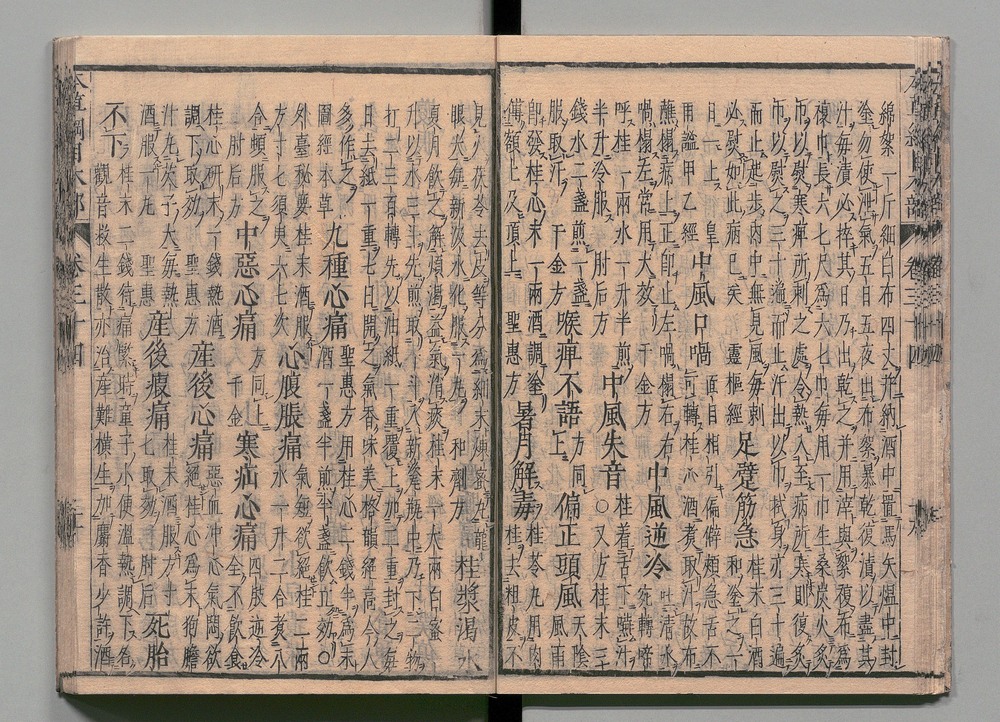 綿絮一斤細白布四丈并納酒中置馬矢熅中封
塗勿使泄氣五日五夜出布絮暴乾復漬以盡其
汁每漬必捽其日乃出乾之并用滓與絮複布爲
複巾長六七尺爲六七巾每用一巾生桑炭火炙
巾以熨寒痺所刺之處令熱入至病所寒則復炙
巾以熨之三十遍而止汗出以巾拭身亦三十遍
而止起步内中無見風每刺
必熨如此病已矣 靈樞經 足躄筋急 桂末白酒
和塗之一
日一上 皇
甫謐甲乙經 中風口喎 面目相引偏僻頰急舌不
可轉桂心酒煮取汁故布
蘸搨病上正卽止左喎搨右右
喎搨左常用大效 千金方 中風逆冷 吐清水
宛轉啼
呼桂一兩水一升半煎
半升冷服 肘后方 中風失音 桂着舌下嚥汁
○又方桂末三
錢水二盞煎一盞
服取汗 千金方 喉痺不語 方同上 偏正頭風 天陰風雨
卽發桂心末一兩酒調塗
傅額上及頂上 聖惠方 暑月解毒 桂苓丸用肉
桂去粗皮不
見火茯苓去皮等分爲細末煉蜜丸龍
眼大每新汲水化服一丸 和劑方 桂漿渴水
夏月飲之解煩渴益氣消痰桂末一大兩白蜜一
升以水二斗先煎取一斗入新瓷瓶中乃下二物
打二三百轉先以油紙一重覆上加二重封之每
日去紙一重七日開之氣香味美格韻絶高今人
多作之
圖經本草 九種心痛 聖惠方用桂心二錢半爲末
酒一盞半煎半盞飲立效○
外臺秘要桂末酒服
方寸匕須臾六七次 心腹脹痛 氣短欲絶桂二兩
水一升二合煮八
合頓服之
肘后方 中惡心痛 方同上
千金 寒疝心痛 四肢逆冷
全不飲食
桂心研末一錢熱酒
調下取效 聖惠方 產後心痛 惡血冲心氣悶欲
絶桂心爲末狗膽
汁丸芡子大每熱
酒服一丸 聖惠 產後瘕痛 桂末酒服方寸
匕取效 肘后 死胎
不下 桂末二錢待痛緊時童子小便温熱調下名
觀音救生散亦治產難横生加麝香少許酒